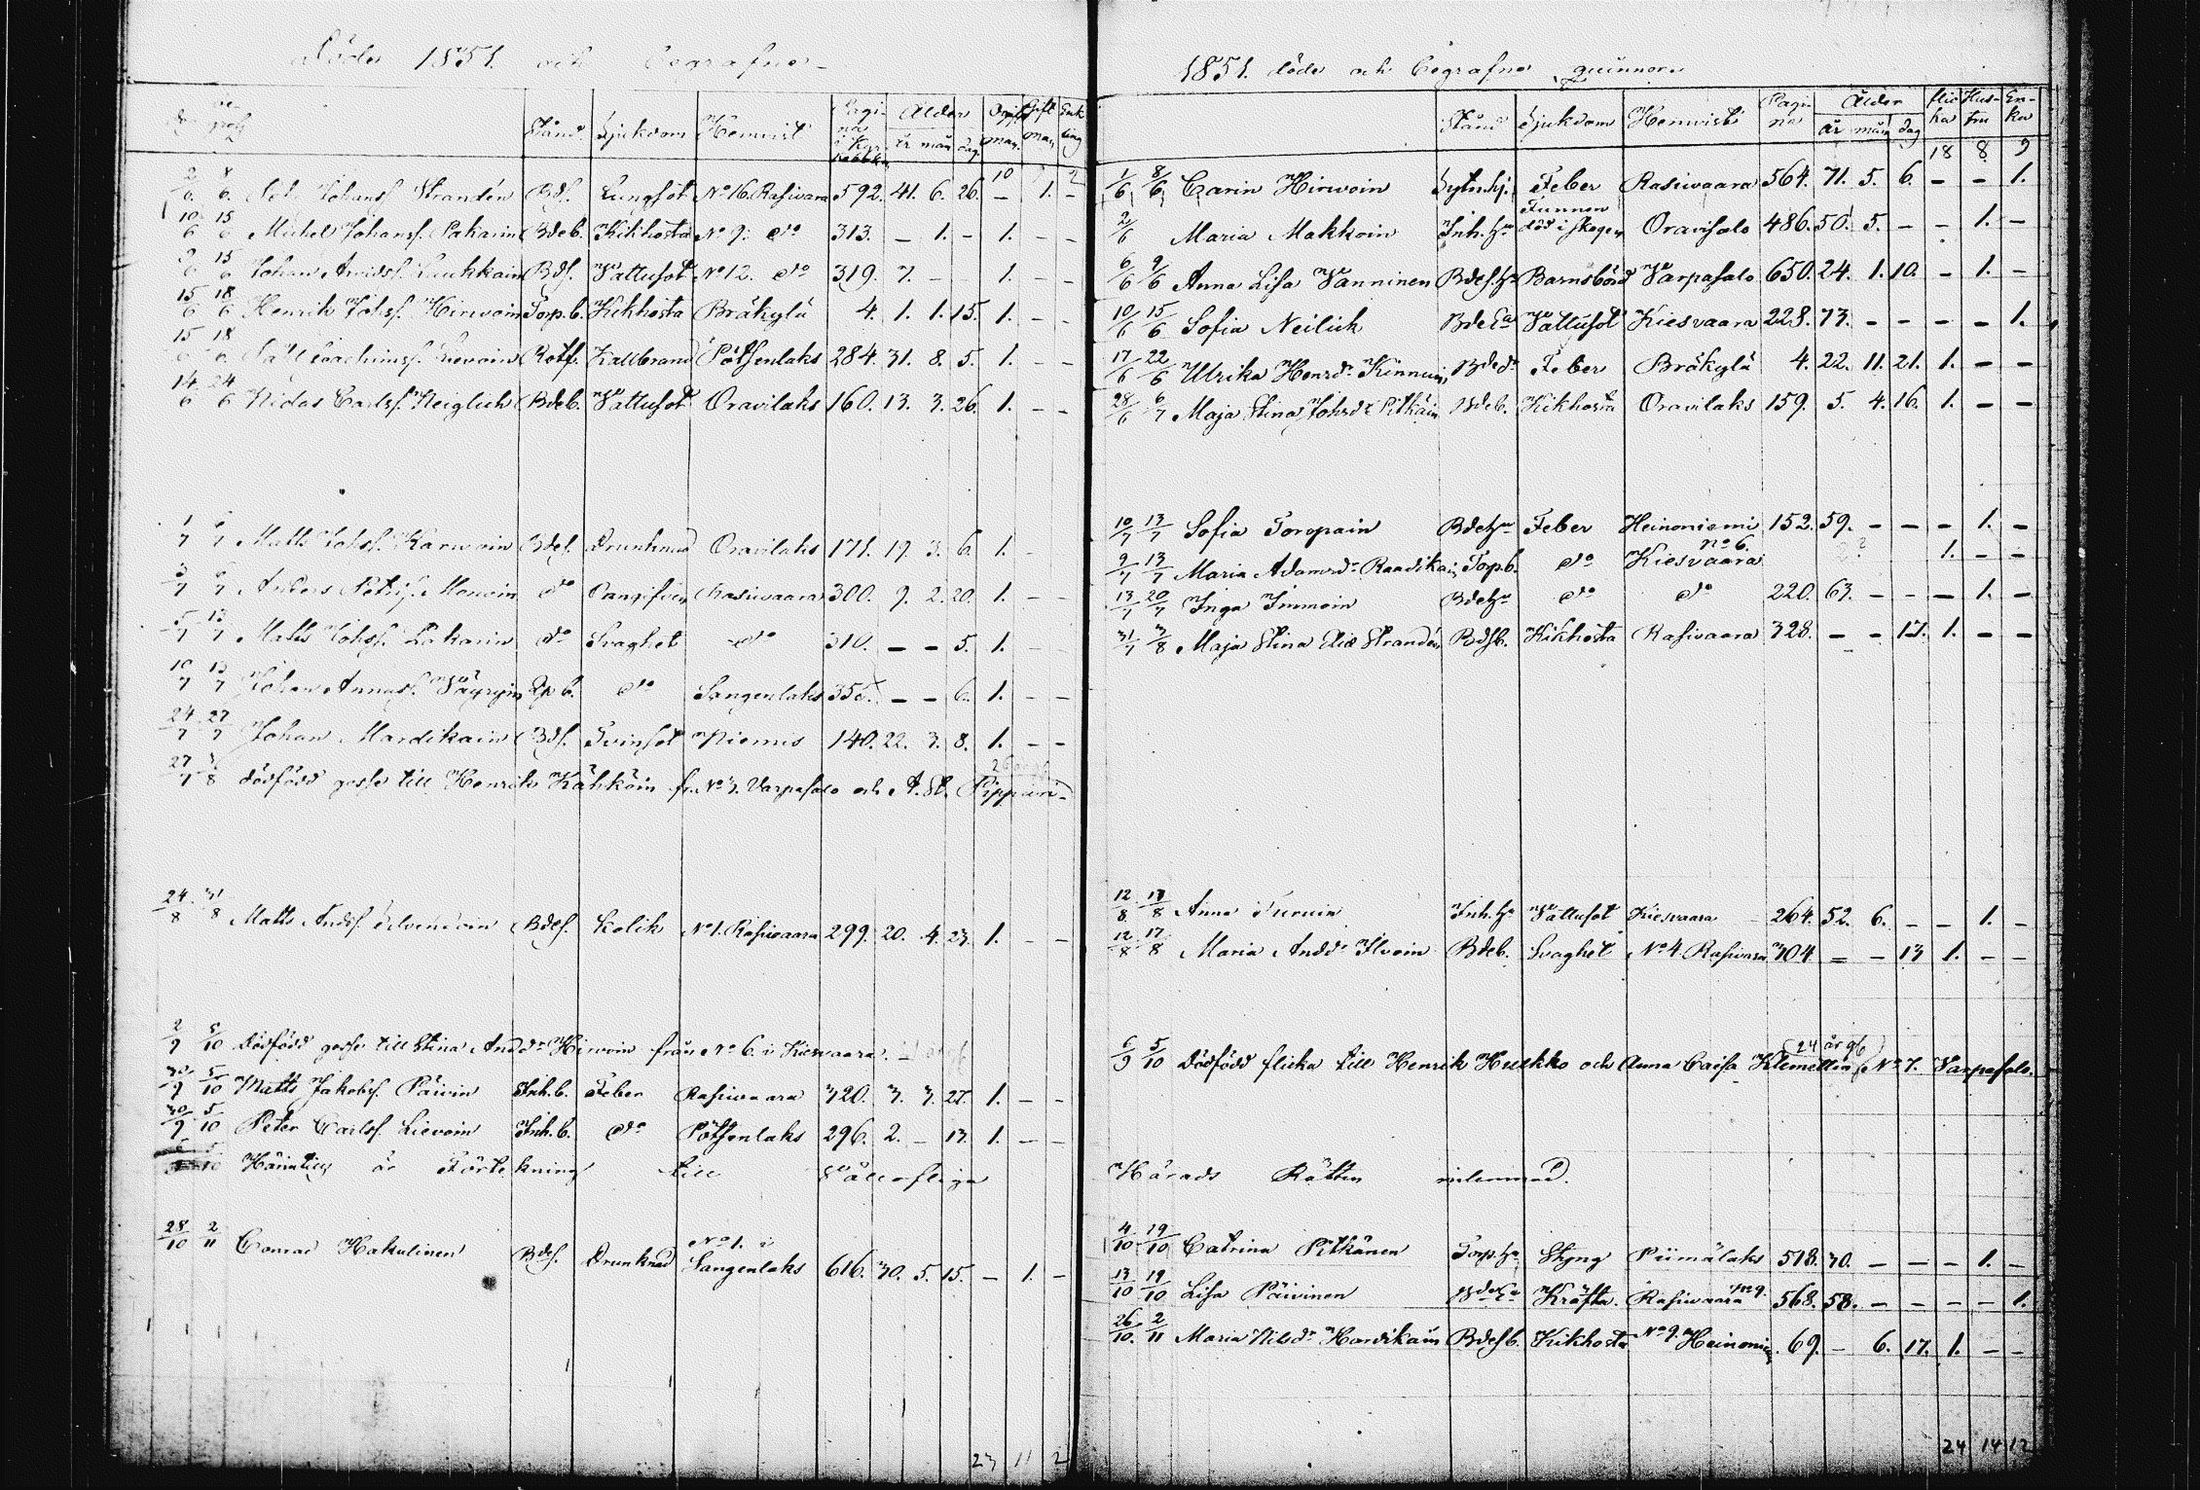 Döde 1851. och begrafne
Stånd Sjukdom Hemvist Pagina i Kyr. bokken Ålder år mån dag. Ogift man. Gift man Enkling
10 7 2
2/6. 8/6. Joh. Johansf. Strandén Bdf. Lungsot No 16. Rasivara 592. 41. 6. 26. – 1. –
10/6 15/6 Michel Johansf. Pakarin Bdeb. Kikhosta No 9. do 313. – 1. – 1. – –
9/6 15/6 Johan Arvidsf. Luukkain Bdf. Vattusot No 12. do 319. 7. – 1. – –
15/6 18/6 Henrik Johsf. Hirvoin Torp.b. Kikhosta Bräkylä 4. 1. 1. 15. 1. – –
15/6 18/6 Joachimsf. Lievoin Rotf. Kallbrand Pötsenlaks 284. 31. 8. 5. 1. – –
14/6 24/6 Nidas Carlsf. Neiglick Bdeb. Vattusot Oravilaks 160. 13. 3. 26. 1. – –
1/7 6/7 Matts Johsf. Karvoin Bdef. Drunknad Oravilaks 171. 19. 3. 6. 1. –
3/7 6/7 Anders Petrif. do Rasivaara 300. 9. 2. 20. 1. – –
5/7 13/7 Matts Johsf. Pakarin do Svaghet do 310. – – 5. 1. – –
10/7 13/7 Johan Annasf. Väyryin do Sangenlaks 356. – – 6. 1. – –
24/7 27/7 Johan Mardikain Bdf. Tvinsot Niemis 140. 22. 3. 8. 1. – –
27/7 3/8 dödfödd gosse till Henrik Kähköin fr. No 3. Varpasalo och A. St. Pippuri
24/8 31/8 Matts Andsf. Bdef. Kolik No 1. Rasivaara 299. 20. 4. 23. 1. – –
2/9 5/10 Dödfödd gosse till Stina Andd:r Hirvoin från No 6. i Kiesvaara.
30/9 5/10 Matts Jakobsf. Päivin Inh.b. Feber Rasivaara 320. 3. 3. 27. 1. – –
30/9 5/10 Peter Carlsf. Lievoin Inh.b. do Pötsenlaks 296. 2. – 13. 1. – –
Härintill är Förteckning till Vällofliga
28/10 2/11 Conrad Hakulinen Bdef. Drunknad No 1. i Sangenlaks 616. 30. 5. 15. – 1. –
23 11 2
1851. döde och begrafne quinnor
Stånd Sjukdom Hemvist Pagina Ålder år mån dag flicka Hustru Enka
18 8 9
1/6 8/6 Carin Hirvoin Sytn.hj. Feber Rasivaara 564. 71. 5. 6. – – 1.
2/6 Maria Makkoin Inh.hu Funnen död i skogen Oravisalo 486. 50. 5. – – 1. –
6/6 9/6 Anna Lisa Vanninen Bdef.hu Barnsbörd Varpasalo 650. 24. 1. 10. – 1. –
10/6 15/6 Sofia Neilick Bde Ea Vattusot Kiesvaara 228. 73. – – – – 1.
17/6 22/6 Ulrika Henrd:r Kinnuin Bde d:r Feber Bräkylä 4. 22. 11. 21. 1. – –
28/6 6/7 Maja Stina Johsd:r Pitkäin Bdeb. Kikhosta Oravilaks 159. 5. 4. 16. 1. – –
10/7 13/7 Sofia Toropain Bdehu Feber Heinoniemi 152. 59. – – – 1. –
9/7 13/7 Maria Adamsd:r Raadikain Torp.b. do No 6. Kiesvaara 1. – –
13/7 20/7 Inga Immoin Bdehu do do 220. 63. – – – 1. –
31/7 3/8 Maja Stina Strandén Bdfb. Kikhosta Rasivaara 328. – – 17. 1. – –
12/8 17/8 Anna Inh.hu Vattusot Kiesvaara 264. 52. 6. – – 1. –
12/8 17/8 Maria Andd:r Ilvoin Bdeb. Svaghet No 4. Rasivara 304. – – 13 1. – –
6/9 5/10 Dödfödd flicka till Henrik Huikko och Anna Caisa Klemettin (24 år gl) No 7. Varpasalo.
Härads Rätten inlemnad.
4/10 19/10 Catrina Pitkänen Torp.hu Styng Piimälaks 518. 30. – – – 1. –
13/10 19/10 Lisa Päivinen Bde Ea Kräfta. Rasivaara No 9. 568. 58. – – – – 1.
26/10. 2/11 Maria Nilsd:r Hardikain Bdefb. Kikhosta No 9. Heinoniemi 69. – 6. 17. 1. – –
24 14 12